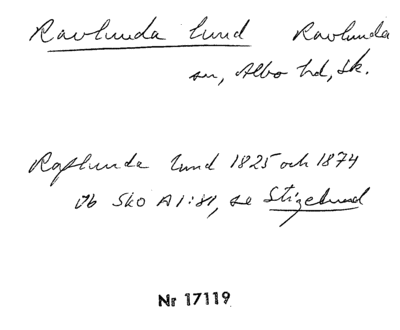 Ravlunda lund Ravlunda
sn, Albo hd, Sk.
Raflunda lund 1825 och 1874
Ob Sko A1:81, se Stigelund
Nr 17119